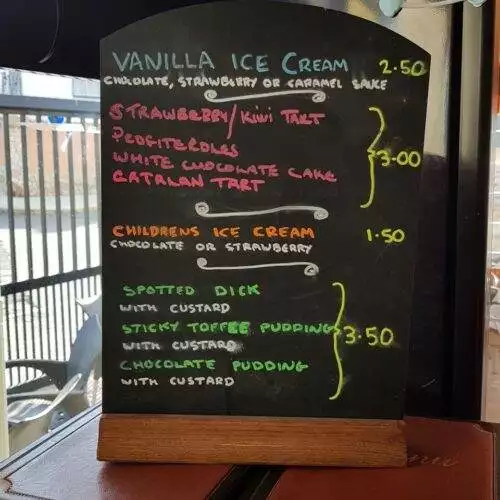 VANILLA ICE CREAM 2.50
CHOCOLATE, STRAWBERRY OR CARAMEL SAUCE
STRAWBERRY/KIWI TART
PROFITEROLES
WHITE CHOCOLATE CAKE
CATALAN TART
3.00
CHILDRENS ICE CREAM 1.50
CHOCOLATE OR STRAWBERRY
SPOTTED DICK
WITH CUSTARD
STICKY TOFFEE PUDDING
WITH CUSTARD
CHOCOLATE PUDDING
WITH CUSTARD
3.50